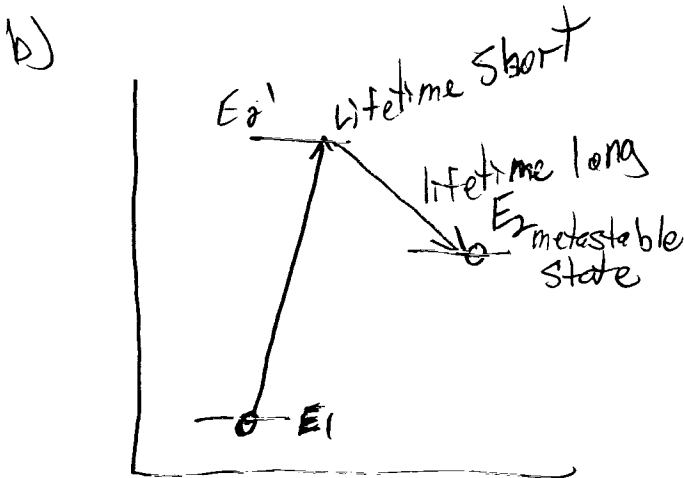 b)
E2' Lifetime short
lifetime long
E2 metastable
state
E1